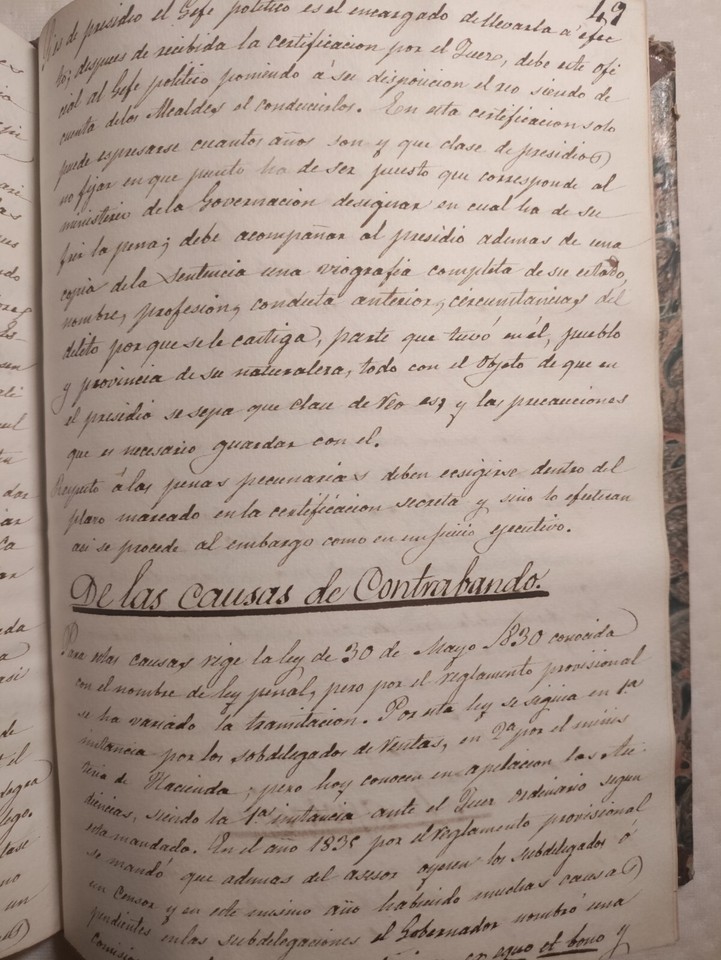 19
de presidio el Gefe politico es el encargado de llevarla á efec
to; despues de recibida la certificacion por el Juez, debe este ofi
cial al Gefe politico poniendo á su disposicion el reo siendo de
cuenta de los Alcaldes el conducirlos. En esta certificacion solo
puede espresarse cuantos años son y que clase de presidio
no fijar en que punto ha de ser puesto que corresponde al
ministerio de la Governacion designar en cual ha de su
frir la pena; debe acompañar al presidio ademas de una
copia de la sentencia una viografia completa de su estado,
nombre, profesion, conducta anterior, circunstancias del
delito por que se le castiga, parte que tuvó en él, pueblo
y provincia de su naturaleza, todo con el objeto de que en
el presidio se sepa que clase de reo es, y las precauciones
que es necesario guardar con el.
Respecto á las penas pecuniarias deben ecsigirse dentro del
plazo marcado en la certificacion secreta y sino lo efectuan
asi se procede al embargo como en un juicio ejecutivo.
De las causas de Contrabando.
Para estas causas rige la ley de 30 de Mayo 1830 conocida
con el nombre de ley penal, pero por el reglamento provisional
se ha variado la tramitacion. Por esta ley se seguia en 1ª
instancia por los subdelegados de Rentas, en 2ª por el minis
terio de Hacienda; pero hoy conocen en apelacion las Au
diencias, siendo la 1ª instancia ante el Juez ordinario segun
esta mandado. En el año 1835 por el reglamento provisional
se mandó que ademas del asesor oyesen los subdelegados á
un censor y en este mismo año habiendo muchas causas
pendientes en las subdelegaciones el Gobernador nombró una
ex equo et bono y